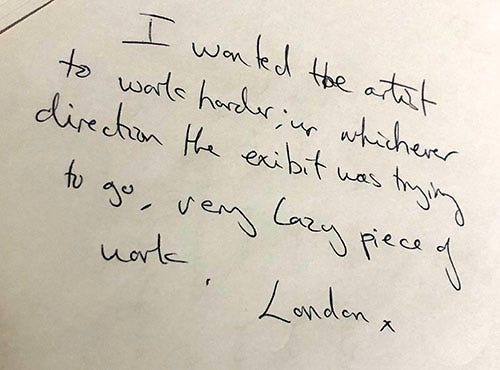 I wanted the artist
to work harder; in whichever
direction the exibit was trying
to go, very lazy piece of
work.
London x